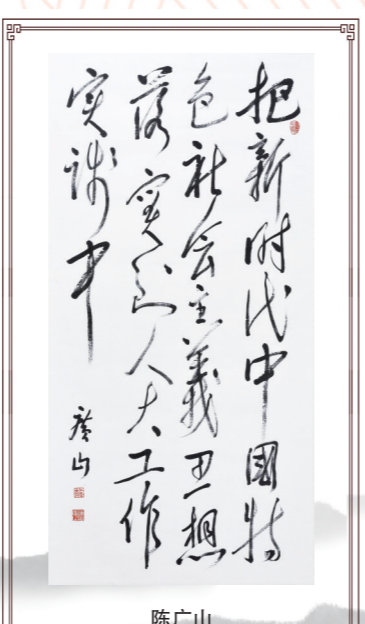 把新时代中國特
色社会主義思想
落實到人大工作
实践中
廣山
陈广山